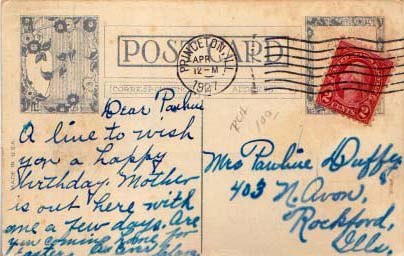 POST CARD
PRINCETON, ILL.
APR
12-M
1927
2 CENTS 2
MADE IN U.S.A.
Dear Pauline
A line to wish
you a happy
birthday. Mother
is out here with
me a few days. Are
you coming home for
Easter. As Ever
Mrs Pauline Duffey
403 N. Avon,
Rockford,
Ills.